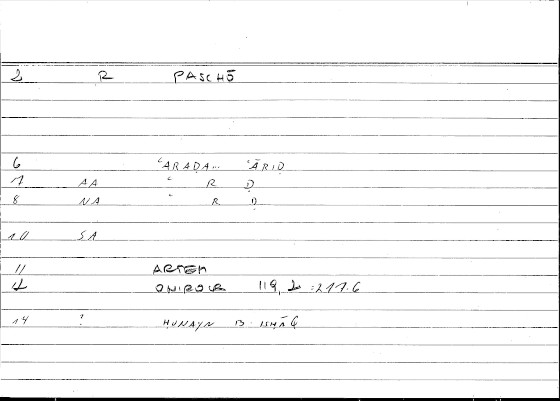 2 R PASCHŌ
6 ʿARAḌA... ʿĀRIḌ
7 AA ʿ R Ḍ
8 NA ʿ R Ḍ
10 SA
11 ARTEM
12 ONIROCR 119, 2 = 211.6
14 ? HUNAYN B. ISḤĀQ